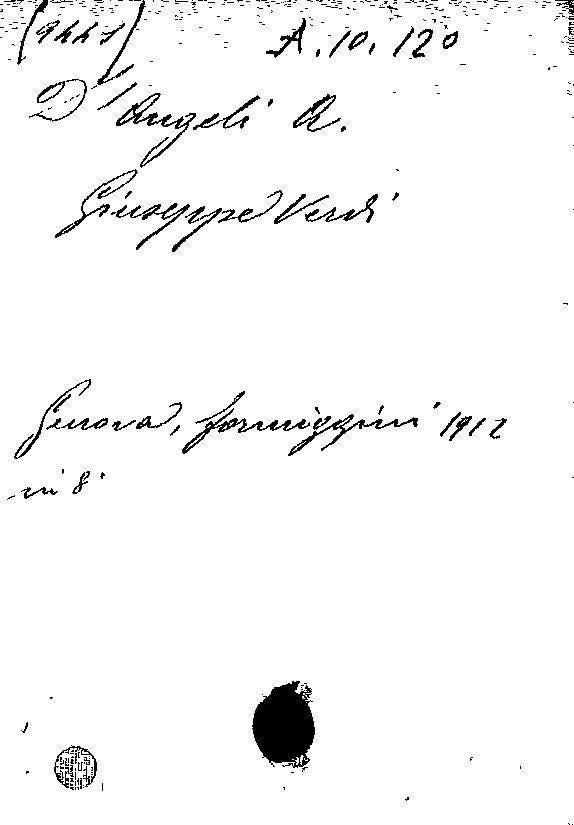 A. 10. 120
D'Angeli A.
Giuseppe Verdi
Genova, formiggini 1912
in 8°